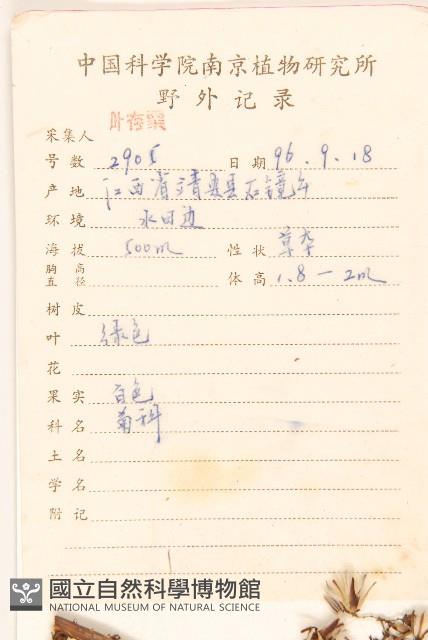 中国科学院南京植物研究所
野外记录
采集人 叶存粟
号数 2905 日期 96.9.18
产地 江西省靖安县石镜
环境 水田边
海拔 500m 性状 草本
胸高直径 体高 1.8-2m
树皮
叶 绿色
花
果实 白色
科名 菊科
土名
学名
附记
國立自然科學博物館
NATIONAL MUSEUM OF NATURAL SCIENCE